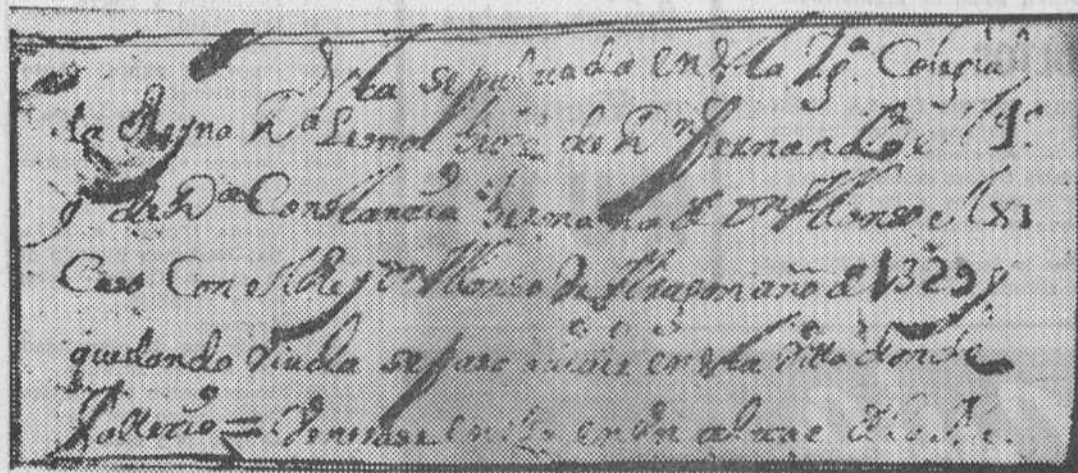 Esta sepultada en esta Ygª Colegial
la Reyna Dª Leonor hixa de Dn Fernando el 4º
y de Dª Constancia hermana de Dn Alonso el XI
Caso Con el Rey Dn Alonso de Aragon año de 1329 y
quedando viuda se paso a vivir en esta villa donde
fallecio =